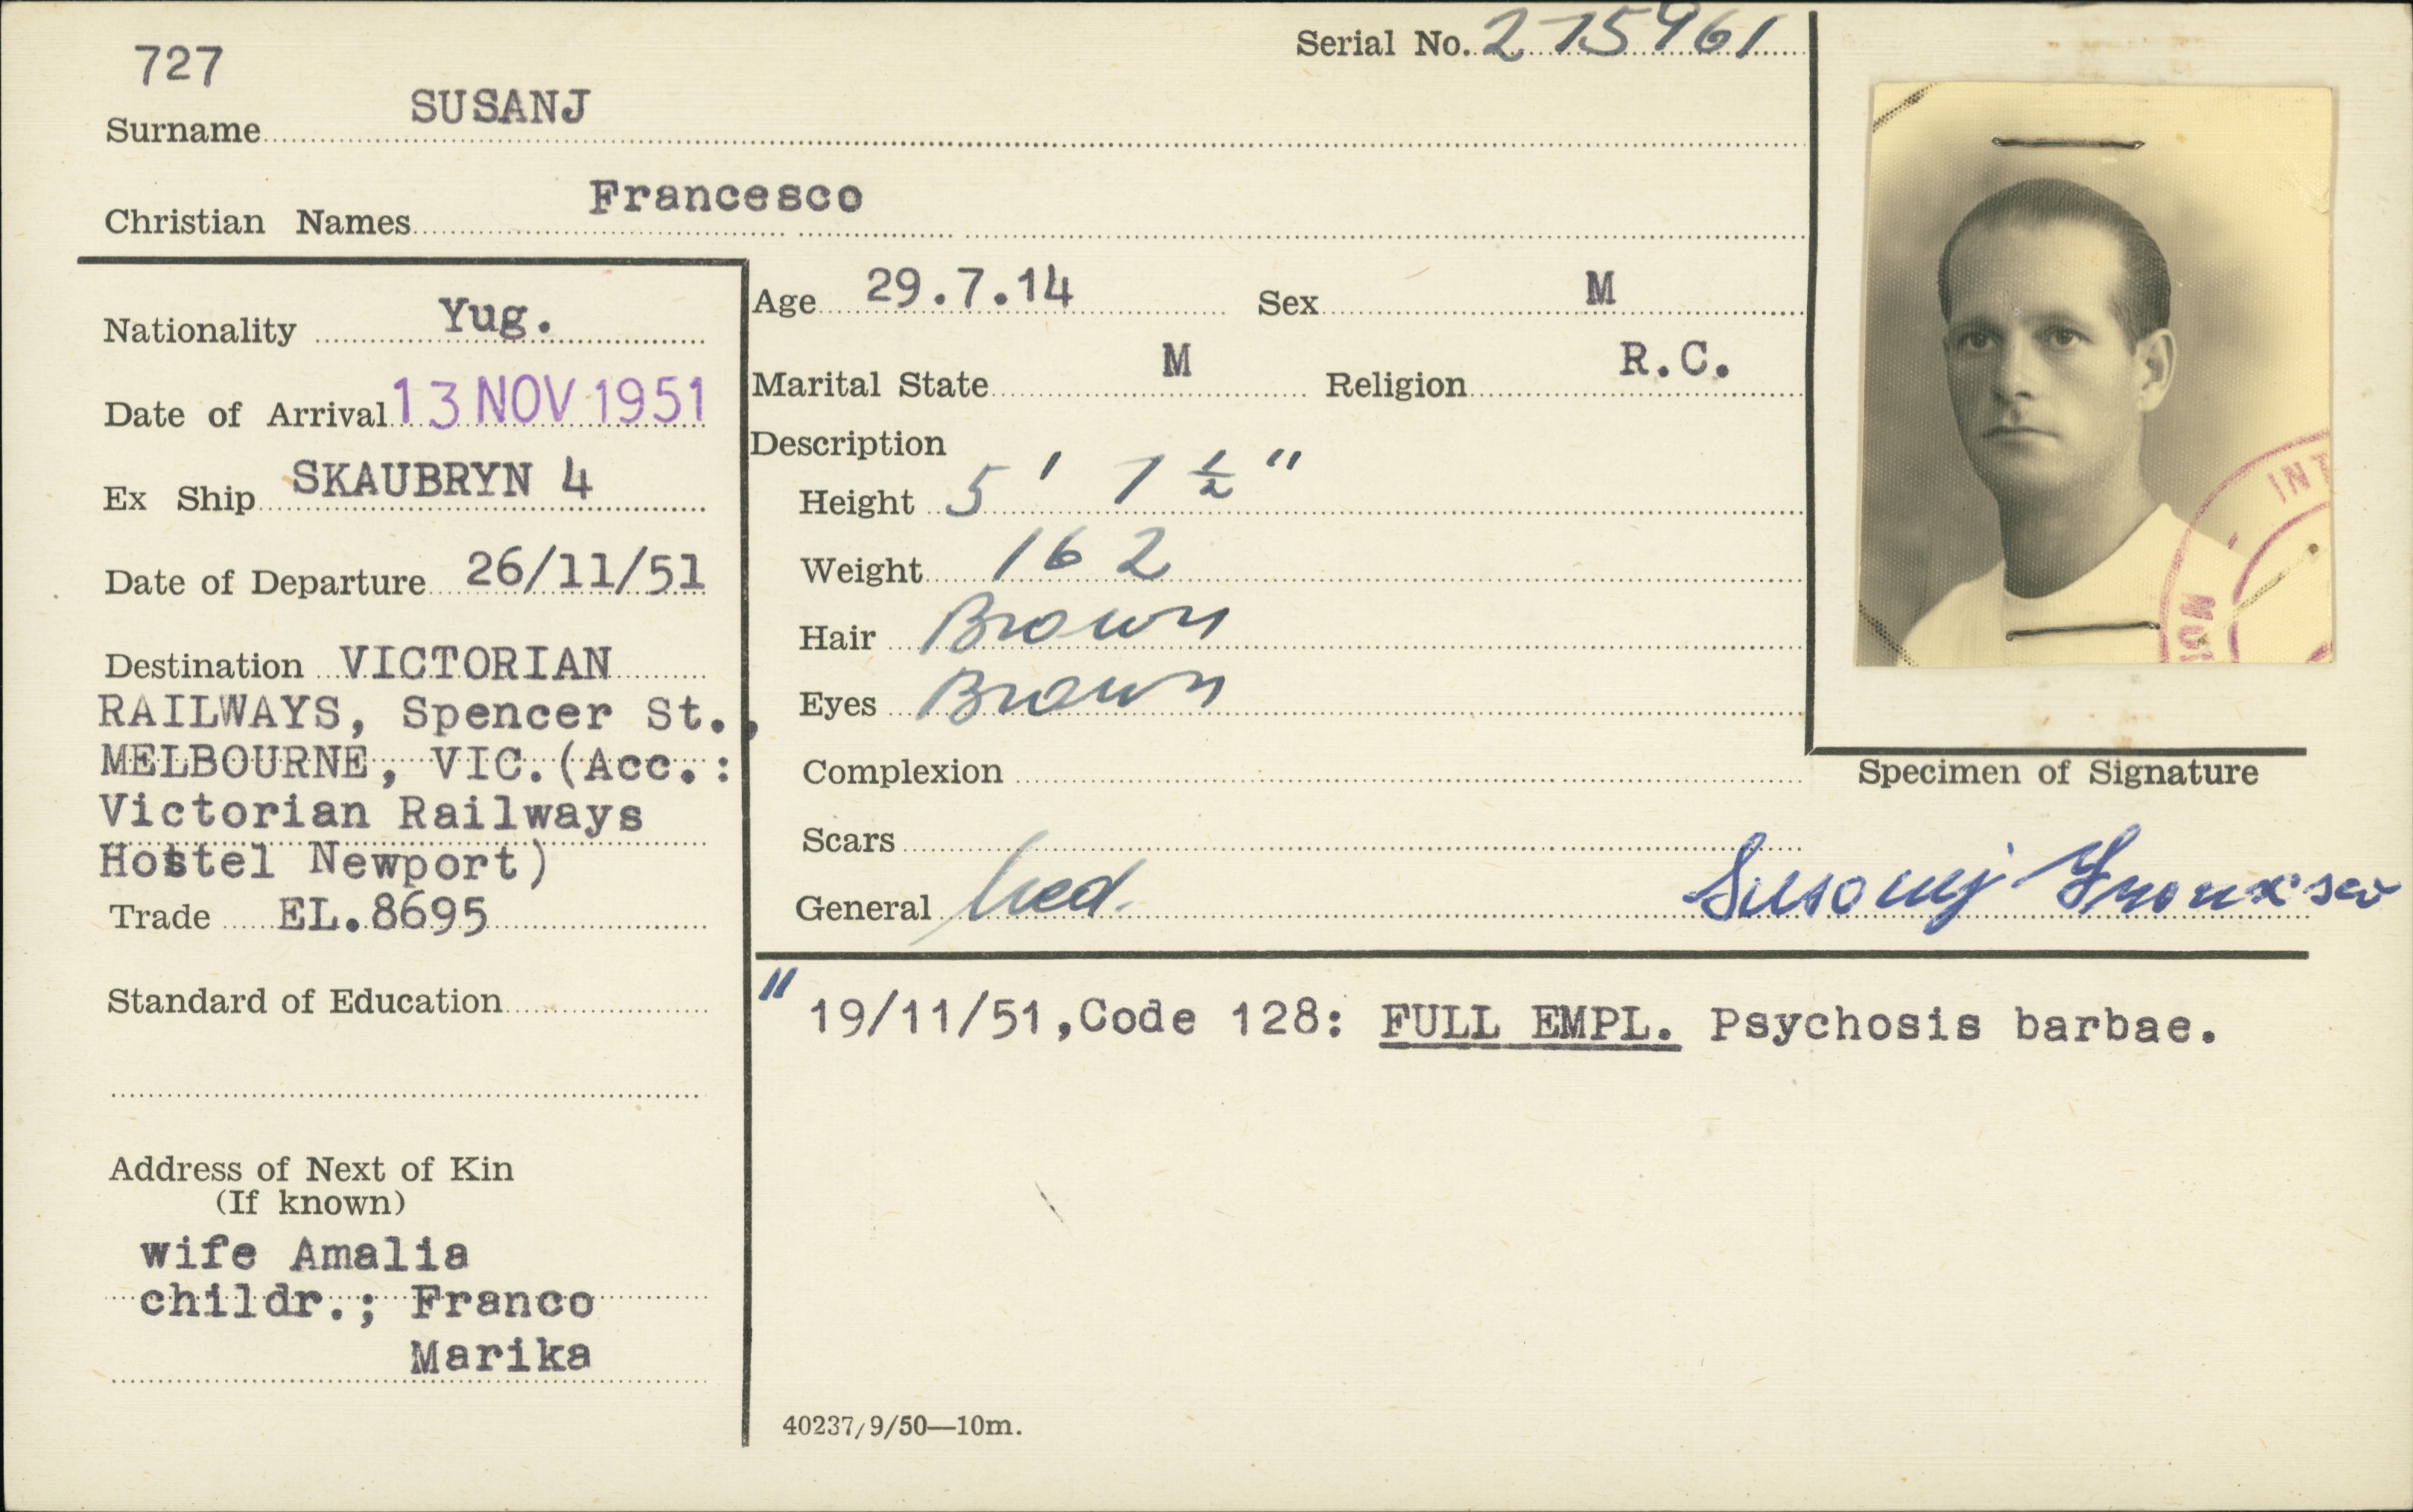 727
Serial No. 275961
Surname SUSANJ
Christian Names Francesco
Nationality Yug.
Date of Arrival 13 NOV 1951
Ex Ship SKAUBRYN 4
Date of Departure 26/11/51
Destination VICTORIAN
RAILWAYS, Spencer St.,
MELBOURNE, VIC. (Acc.:
Victorian Railways
Hostel Newport)
Trade EL.8695
Standard of Education
Address of Next of Kin
(If known)
wife Amalia
childr.; Franco
Marika
Age 29.7.14 Sex M
Marital State M Religion R.C.
Description
Height 5' 7 ½"
Weight 162
Hair Brown
Eyes Brown
Complexion
Scars
General Med.
INT
Specimen of Signature
Susanj Francesco
" 19/11/51, Code 128: FULL EMPL. Psychosis barbae.
40237/9/50—10m.